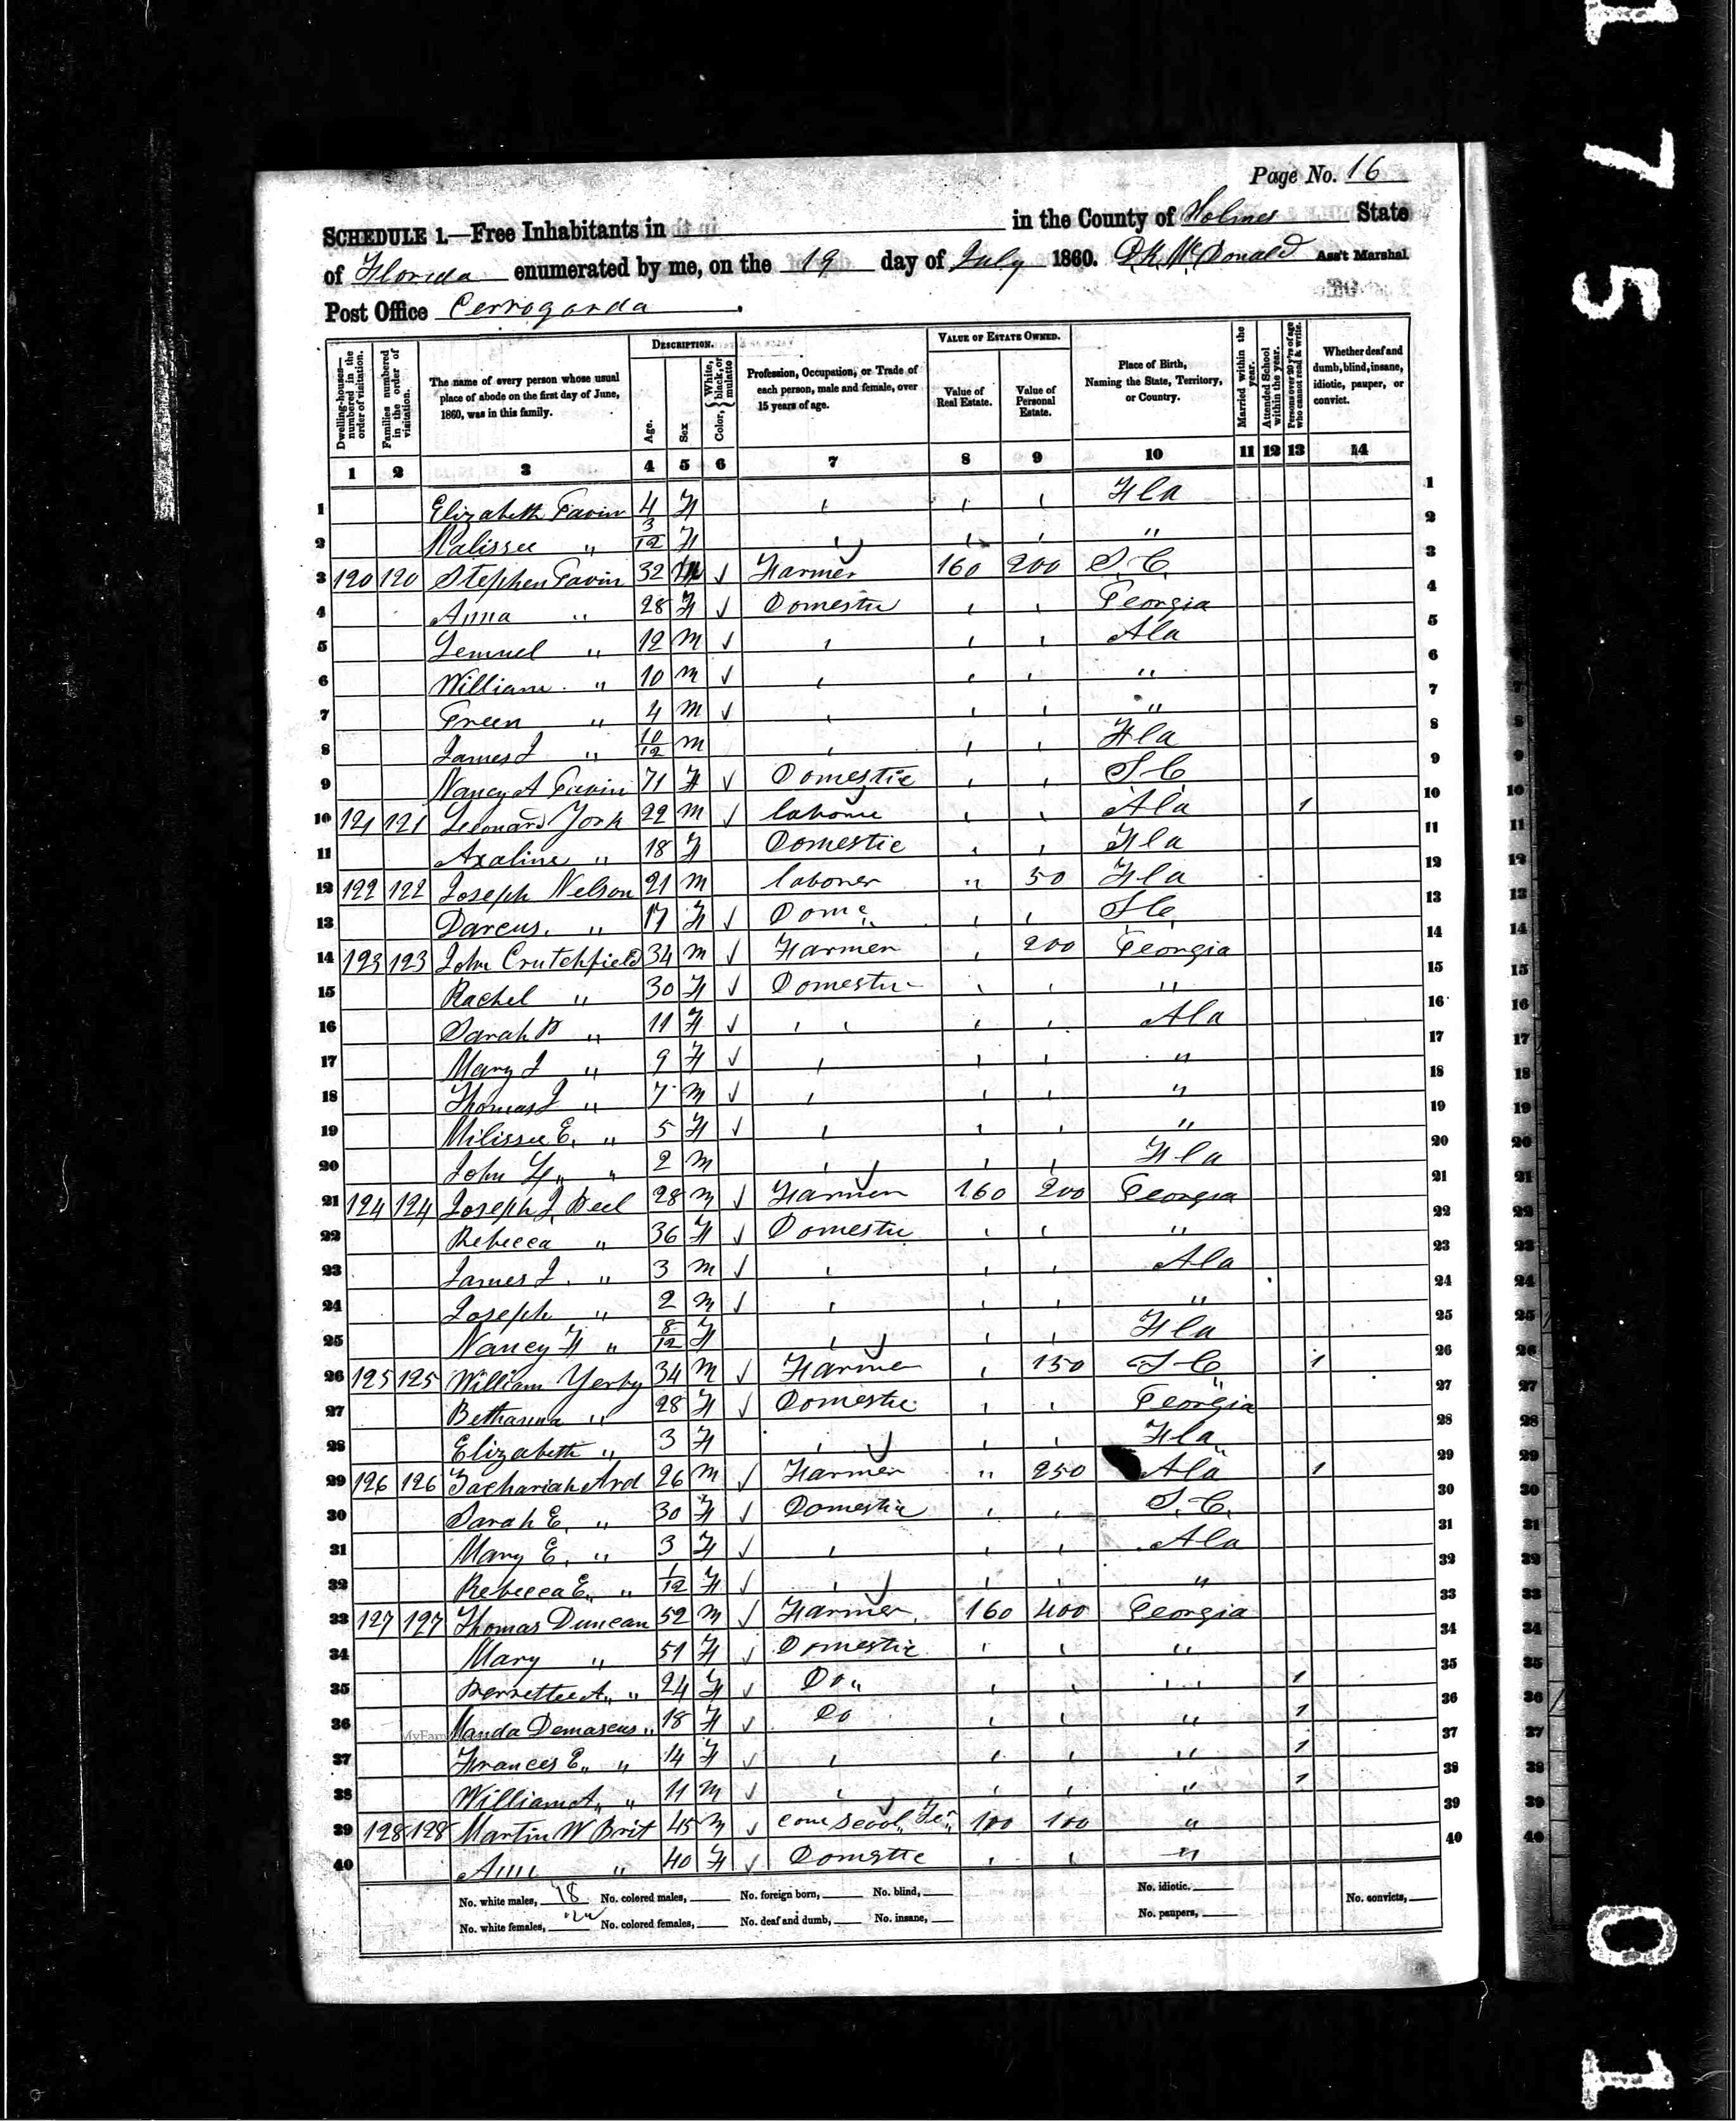 Page No. 16
SCHEDULE 1.—Free Inhabitants in in the County of Holmes State
of Florida enumerated by me, on the 19 day of July 1860. D. K. McDonald Ass't Marshal.
Post Office Cerrogorda.
DESCRIPTION. VALUE OF ESTATE OWNED.
Dwelling-houses—numbered in the order of visitation. Families numbered in the order of visitation. The name of every person whose usual place of abode on the first day of June, 1860, was in this family. Age. Sex Color, { White, black, or mulatto Profession, Occupation, or Trade of each person, male and female, over 15 years of age. Value of Real Estate. Value of Personal Estate. Place of Birth, Naming the State, Territory, or Country. Married within the year. Attended School within the year. Persons over 20 y'rs of age who cannot read & write. Whether deaf and dumb, blind, insane, idiotic, pauper, or convict.
1 2 3 4 5 6 7 8 9 10 11 12 13 14
1 Elizabeth Gavin 4 F Fla 1
2 Malissee " 3/12 F " 2
3 120 120 Stephen Gavin 32 M ✓ Farmer 160 200 S. C. 3
4 Anna " 28 F ✓ Domestic Georgia 4
5 Lemuel " 12 M ✓ Ala 5
6 William " 10 M ✓ " 6
7 Green " 4 M ✓ " 7
8 James J " 10/12 M Fla 8
9 Nancy A Gavin 71 F ✓ Domestic S. C 9
10 121 121 Leonard York 22 M ✓ Ala 1 10
11 Axaline " 18 F Domestic Fla 11
12 122 122 Joseph Nelson 21 M laborer " 50 Fla 12
13 Darcus " 17 F ✓ Dome S. C. 13
14 123 123 John Crutchfield 34 M ✓ Farmer 200 Georgia 14
15 Rachel " 30 F ✓ Domestic " 15
16 Sarah " 11 F ✓ Ala 16
17 Mary J " 9 F ✓ " 17
18 Thomas J " 7 M ✓ " 18
19 Milissee E. " 5 F ✓ " 19
20 John " 2 M Fla 20
21 124 124 Joseph J. Peel 28 M ✓ Farmer 160 200 Georgia 21
22 Rebecca " 36 F ✓ Domestic " 22
23 James J. " 3 M ✓ Ala 23
24 Joseph " 2 M ✓ " 24
25 Nancy F " 8/12 F Fla 25
26 125 125 William Yerby 34 M ✓ Farmer 150 S. C 1 26
27 Bethanna " 28 F ✓ Domestic Georgia 27
28 Elizabeth " 3 F Fla 28
29 126 126 Zachariah Ard 26 M ✓ Farmer " 250 Ala 1 29
30 Sarah E. " 30 F ✓ Domestic S. C. 30
31 Mary E. " 3 F ✓ Ala 31
32 Rebecca E. " 1/12 F ✓ " 32
33 127 127 Thomas Duncan 52 M ✓ Farmer 160 400 Georgia 33
34 Mary " 51 F ✓ Domestic " 34
35 A. " 24 F ✓ Do " 1 35
36 Manda Demascus " 18 F ✓ Do " 1 36
37 Frances E. " 14 F ✓ " 1 37
38 William A. " 11 M ✓ " 1 39
39 128 128 Martin W Brit 45 M ✓ 100 100 " 39
40 Ann " 40 F ✓ Domestic " 40
No. white males, 18 No. colored males, No. foreign born, No. blind, No. idiotic. No. convicts,
No. white females, No. colored females, No. deaf and dumb, No. insane, No. paupers,
1 7 5 0 1